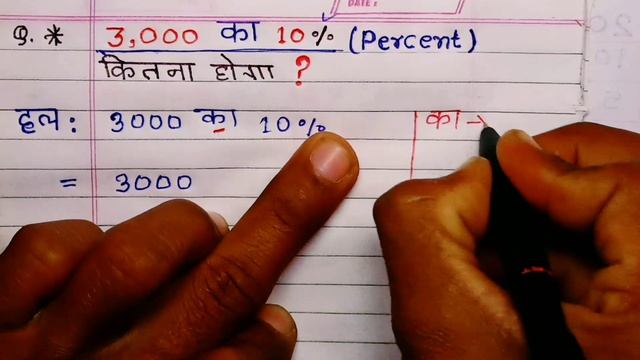 DATE:
Q. * 3,000 का 10% (Percent)
कितना होगा ?
हल: 3000 का 10% का →
= 3000